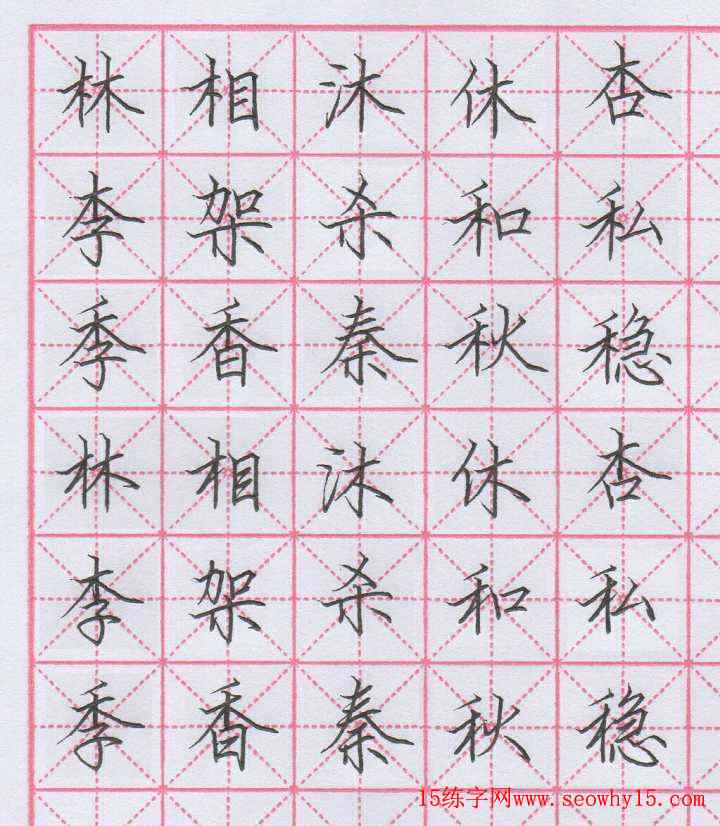 林相沐休杏
李架杀和私
季香秦秋稳
林相沐休杏
李架杀和私
季香秦秋稳
15练字网www.seowhy15.com